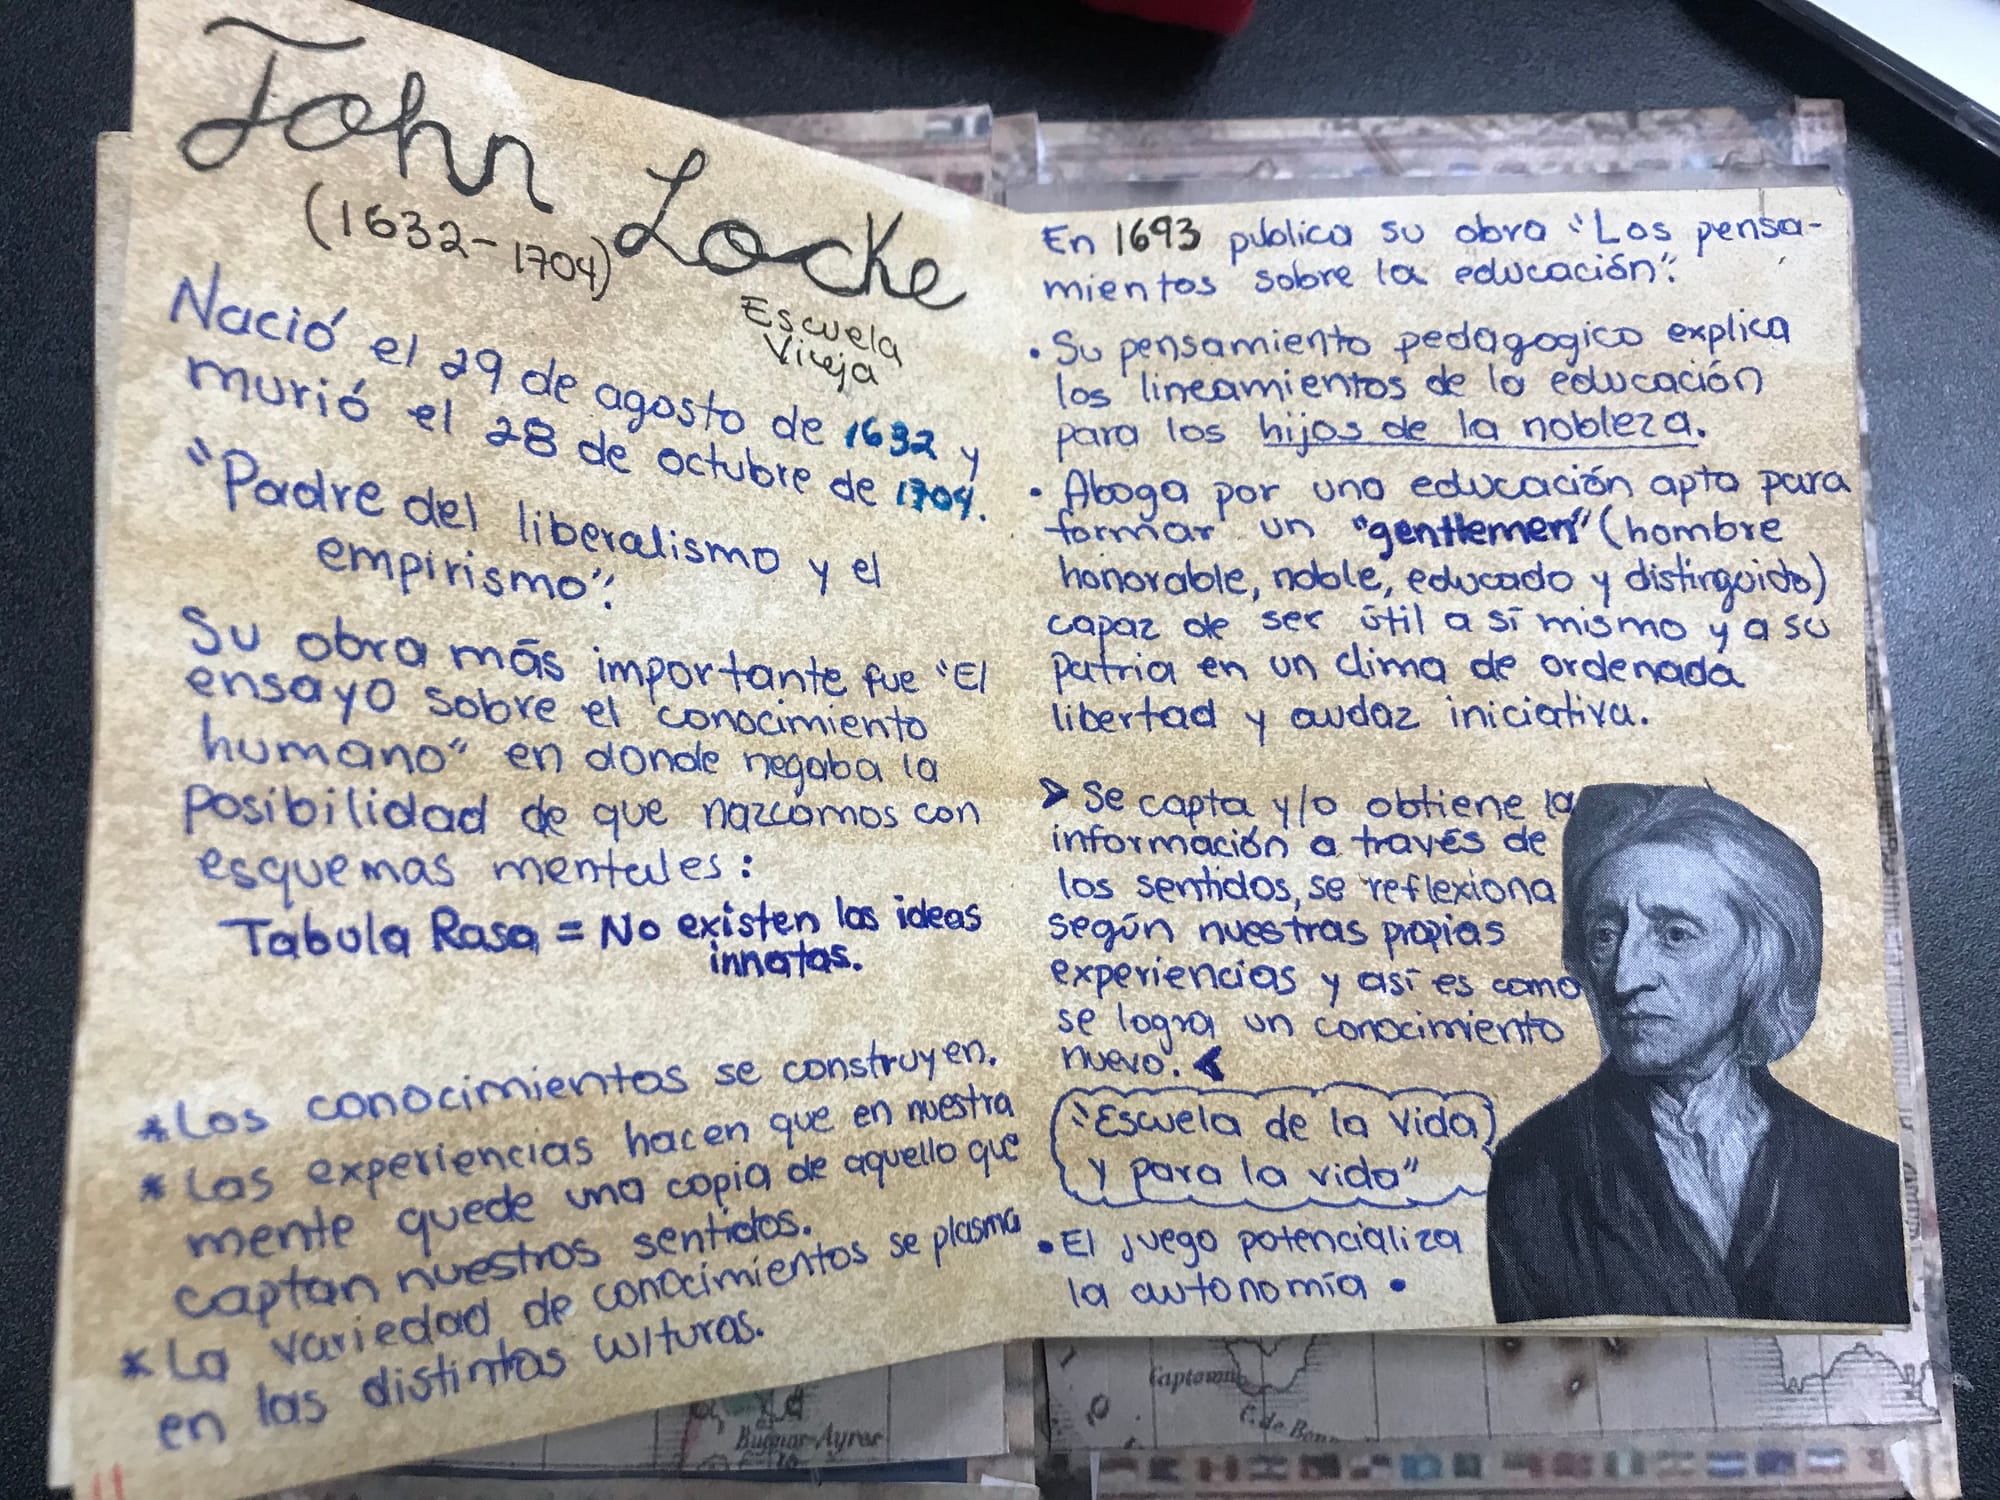 John Locke
(1632-1704)
Escuela
Vieja
Nació el 29 de agosto de 1632 y
murió el 28 de octubre de 1704.
"Padre del liberalismo y el
empirismo".
Su obra más importante fue "El
ensayo sobre el conocimiento
humano" en donde negaba la
posibilidad de que nazcamos con
esquemas mentales:
Tabula Rasa = No existen las ideas
innatas.
*Los conocimientos se construyen.
*Las experiencias hacen que en nuestra
mente quede una copia de aquello que
captan nuestros sentidos.
*La variedad de conocimientos se plasma
en las distintas culturas.
En 1693 publica su obra "Los pensa-
mientos sobre la educación".
• Su pensamiento pedagogico explica
los lineamientos de la educación
para los hijos de la nobleza.
• Aboga por una educación apta para
formar un "gentlemen" (hombre
honorable, noble, educado y distinguido)
capaz de ser útil a sí mismo y a su
patria en un clima de ordenada
libertad y audaz iniciativa.
➤ Se capta y/o obtiene la
información a través de
los sentidos, se reflexiona
según nuestras propias
experiencias y así es como
se logra un conocimiento
nuevo.
"Escuela de la vida
y para la vida"
• El juego potencializa
la autonomía •
C. de